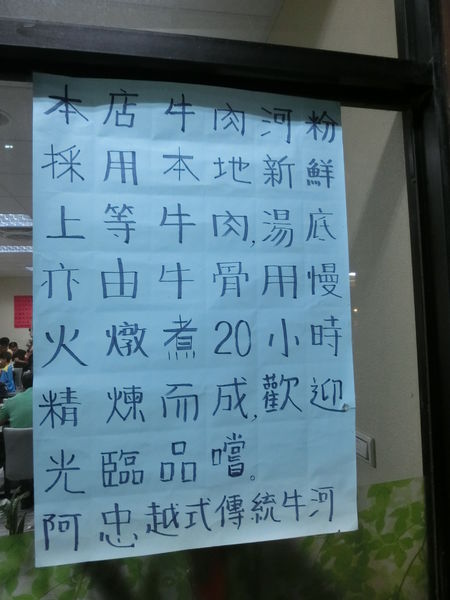 本店牛肉河粉
採用本地新鮮
上等牛肉,湯底
亦由牛骨用慢
火燉煮20小時
精煉而成,歡迎
光臨品嚐。
阿忠越式傳統牛河